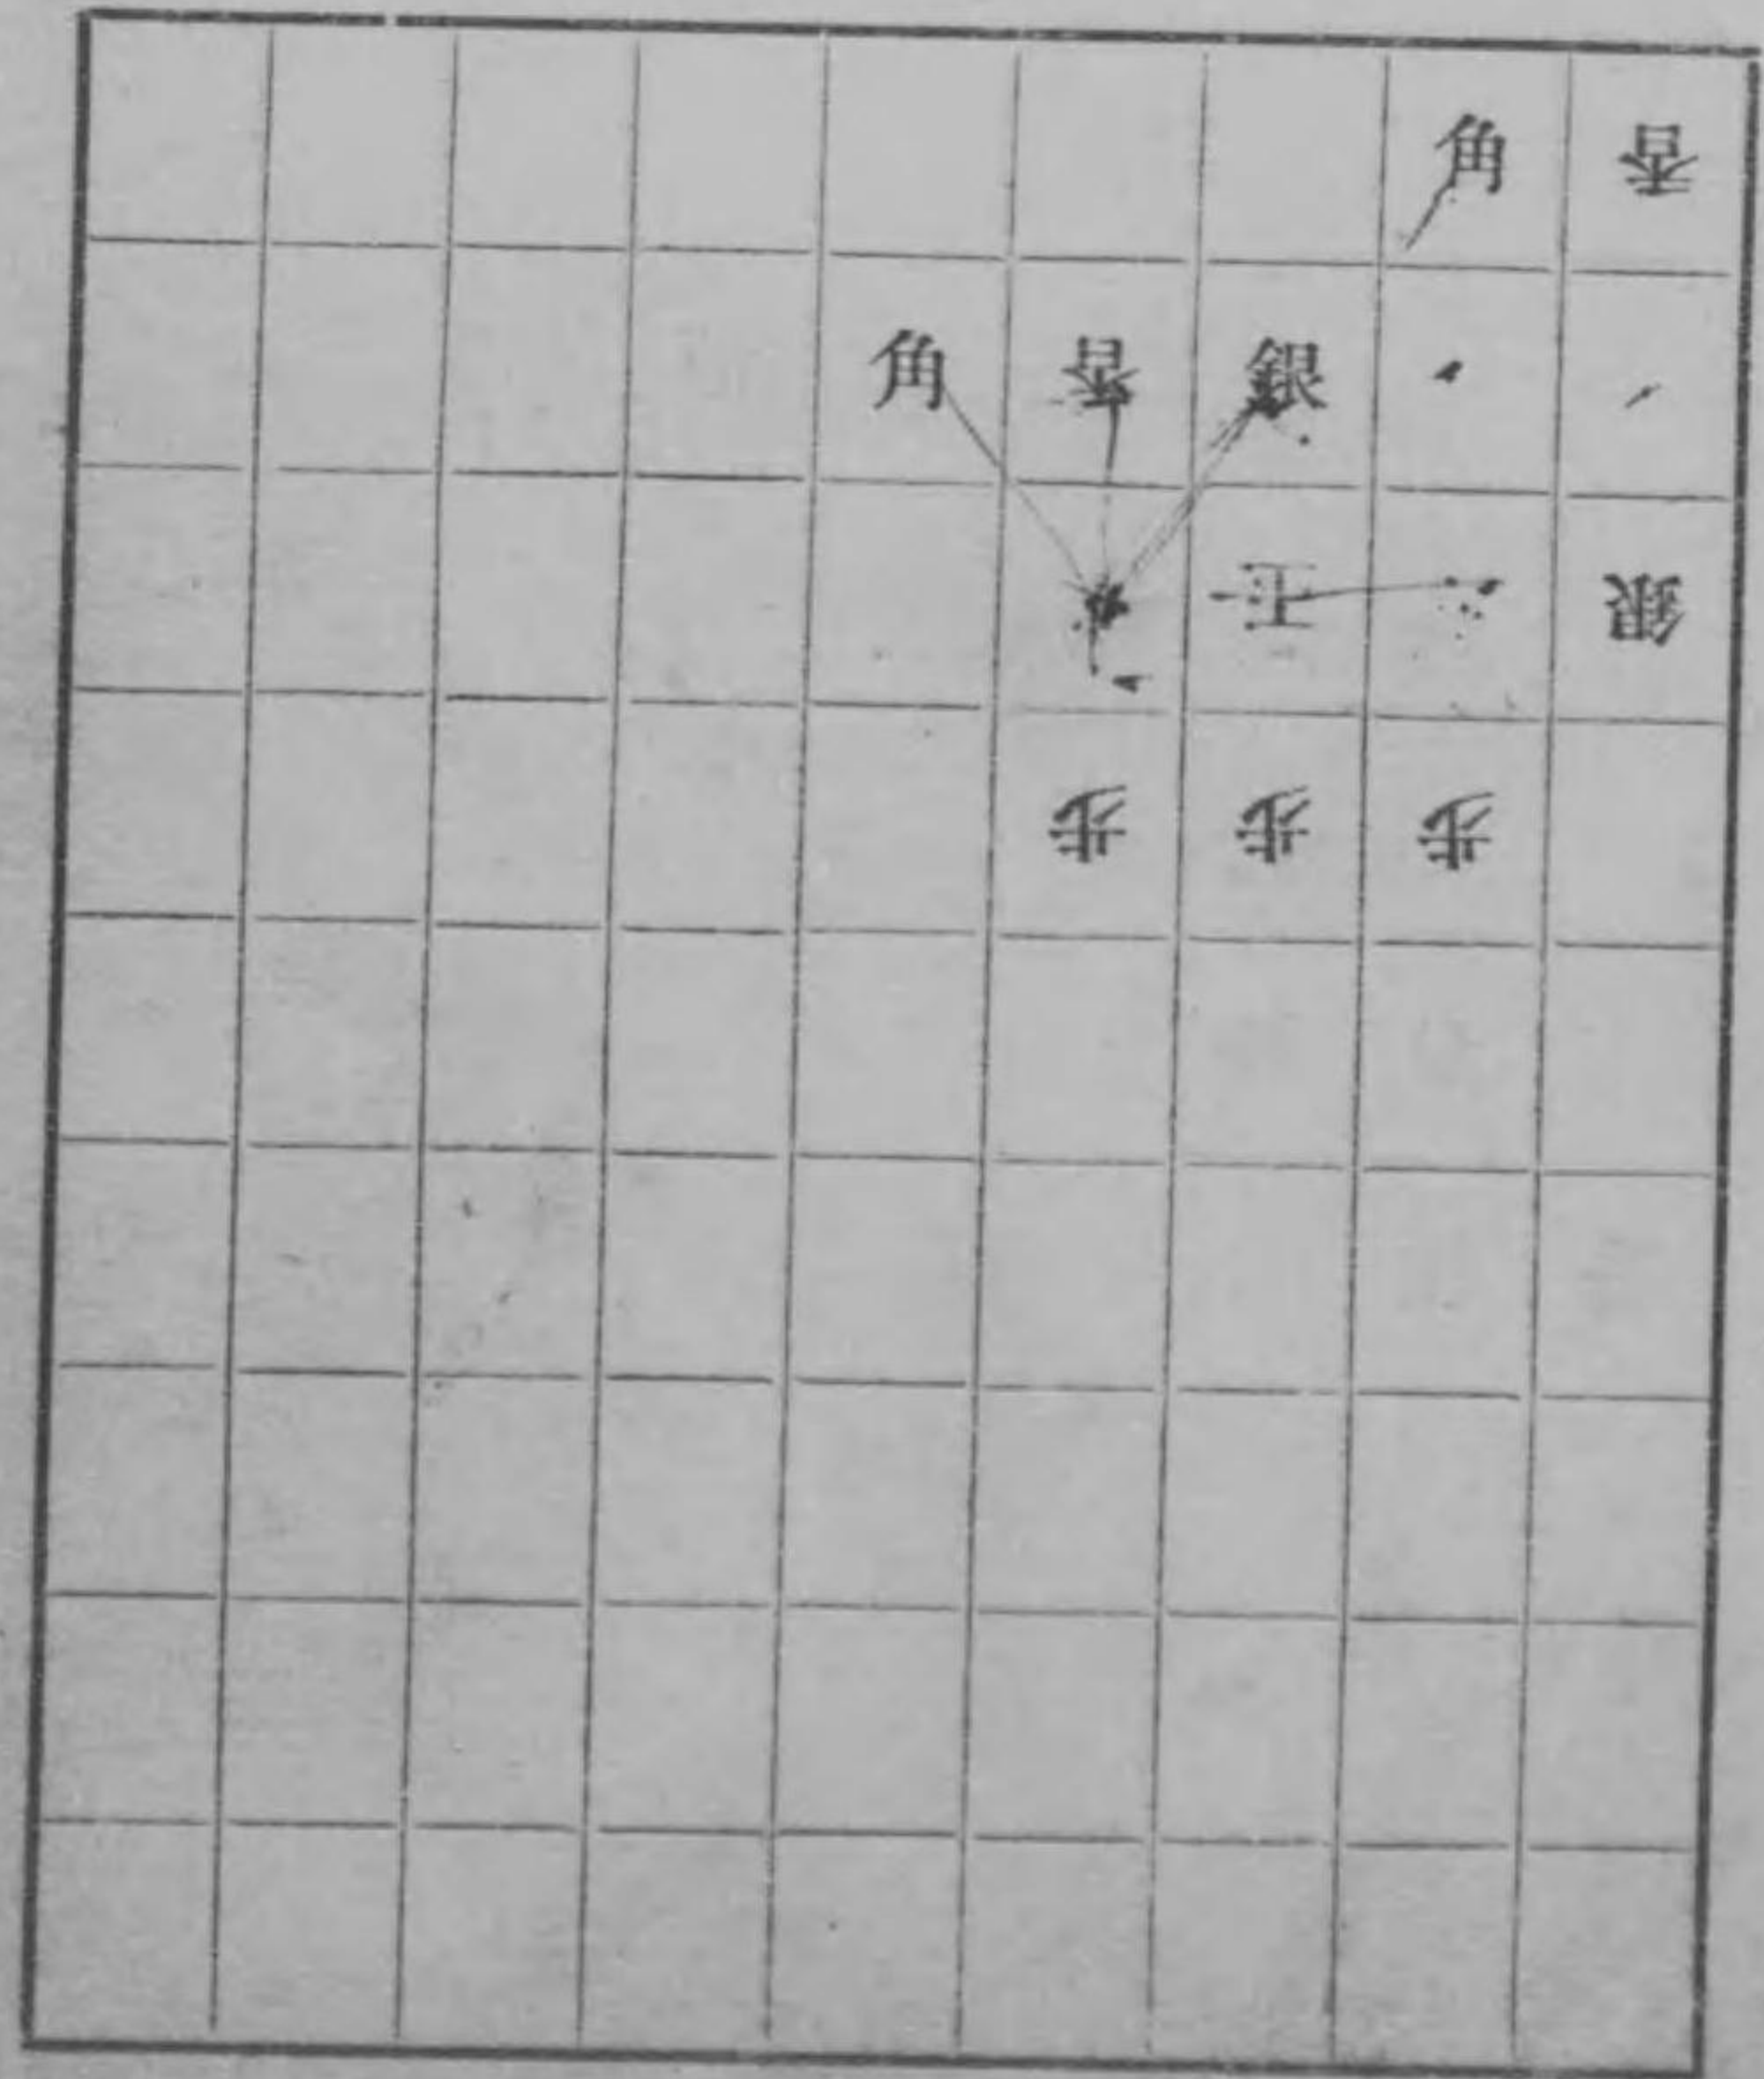 角 香
角 香 銀
王 銀
歩 歩 歩